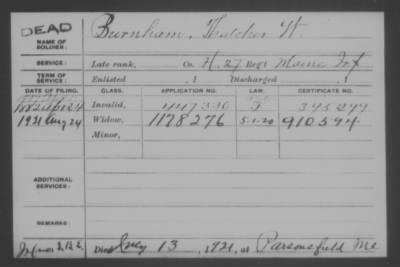 DEAD
NAME OF SOLDIER: Burnham, Thatcher W.
SERVICE: Late rank, Co. H, 27 Regt Maine Inf
TERM OF SERVICE: Enlisted , 1 Discharged , 1
DATE OF FILING. CLASS. APPLICATION NO. LAW. CERTIFICATE NO.
Invalid, 447330
1921 Aug 24 Widow, 1178276 5-1-20 910594
Minor,
ADDITIONAL SERVICES:
REMARKS:
Died 13, 1921, at Parsonsfield Me